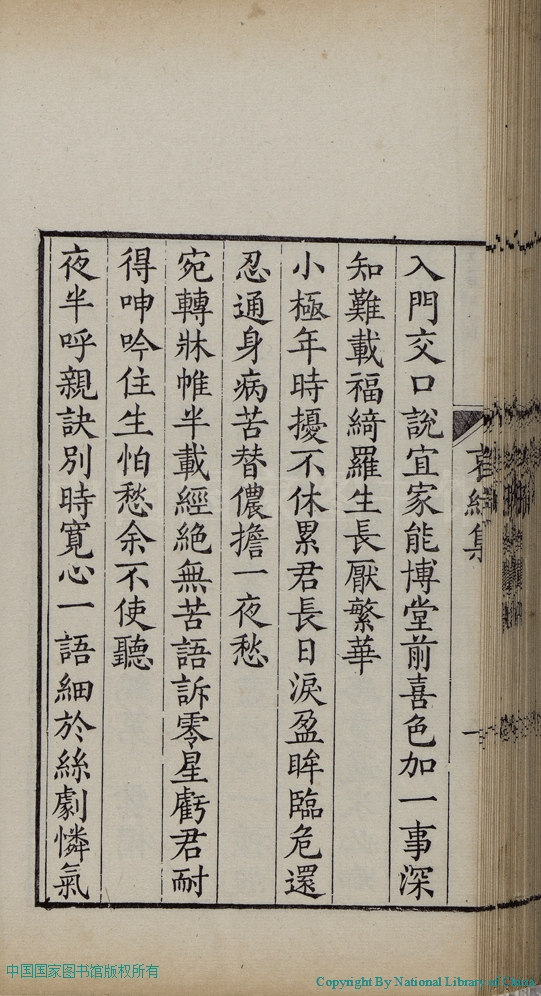 入門交口說宜家能博堂前喜色加一事深
知難載福綺羅生長厭繁華
小極年時擾不休累君長日淚盈眸臨危還
忍通身病苦替儂擔一夜愁
宛轉牀帷半載經絕無苦語訴零星虧君耐
得呻吟住生怕愁余不使聽
夜半呼親訣別時寬心一語細於絲劇憐氣
中国国家图书馆版权所有
Copyright By National Library of China